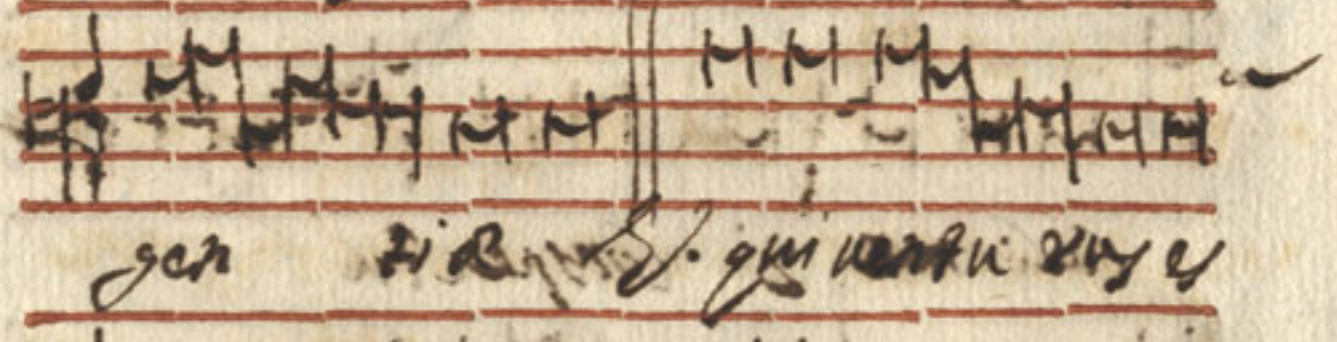 gen tia V. qui ventu rus es